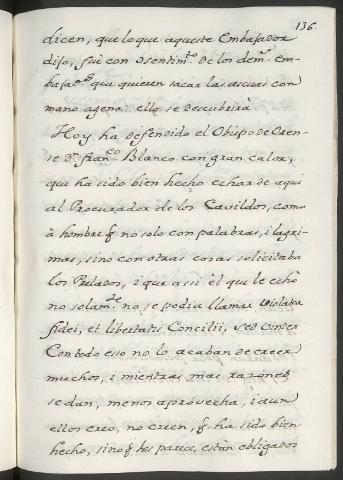 136.
dicen, que lo que aqueste Embaxador
dijo, fué con dsentim.to de los dem.s em-
baxad.es que quieren sacar las ascuas con
mano agena: ello se descubrirà.
Hoy ha defendido el Obispo de Oren-
se D.n fran.co Blanco con gran calor,
que ha sido bien hecho echar de aqui
al Procurador de los Cavildos, como
à hombre q no solo con palabras, i lagri-
mas, sino con otras cosas solicitaba
los Prelados, i que assi èl que le echò
no solam.te no se podia llamar Violator
fidei, et libertatis Concilii, sed vindex
Con todo esso no lo acaban de creer
muchos, i mientras mas razones
se dan, menos aprovecha, i aun
ellos creo, no creen, q ha sido bien
hecho, sino q les parece, estàn obligados